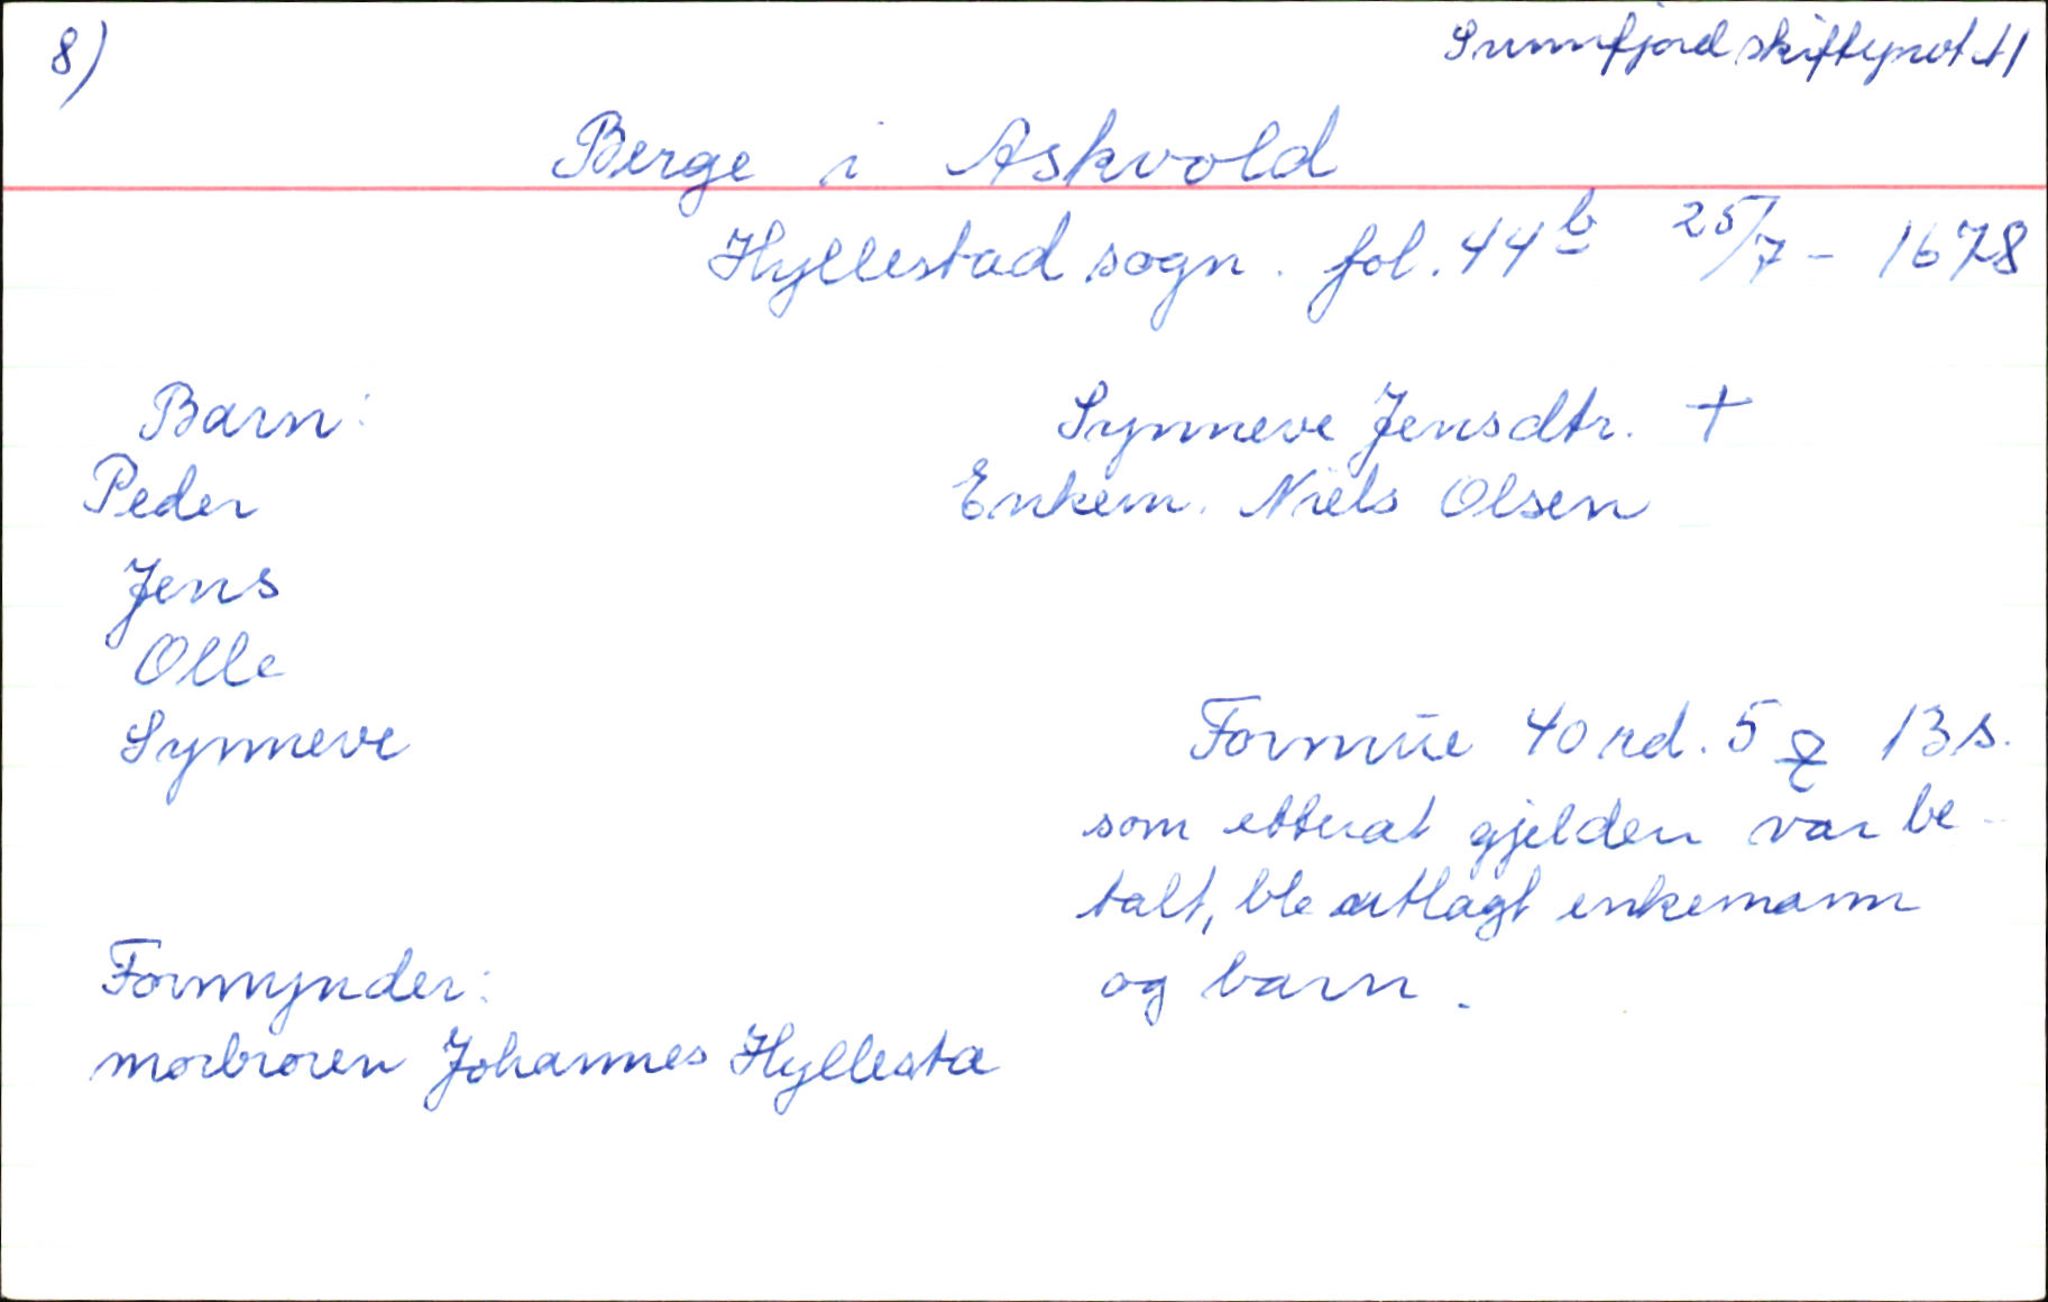 8)
Sunnfjord skifteprot. 1
Berge i Askvold
Hyllestad sogn. fol. 44b 25/7 - 1678
Barn:
Synneve Jensdtr. †
Peder
Enkem. Niels Olsen
Jens
Olle
Synneve
Formue 40 rd. 5 13 s.
som etterat gjelden var be-
talt, ble utlagt enkemann
og barn.
Formynder:
morbroren Johannes Hyllesta